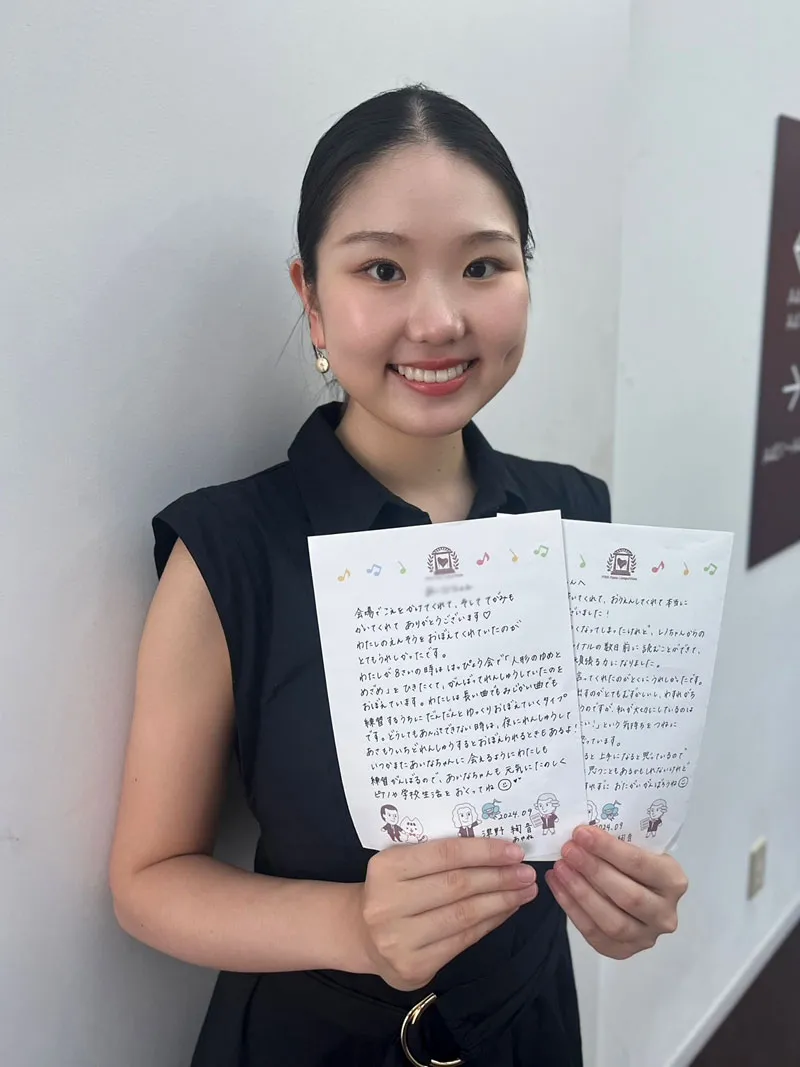 会場でこえをかけてくれて、そして てがみも
かいてくれて ありがとうございます♡
わたしのえんそうをおぼえてくれていたのが
とてもうれしかったです。
わたしが8さいの時は はっぴょう会で「人形のゆめと
めざめ」をひきたくて、がんばってれんしゅうしていたのを
おぼえています。わたしは長い曲でもみじかい曲でも
練習するうちにだんだんとゆっくりおぼえていくタイプ
です。どうしてもあんぷできない時は、夜にれんしゅうして
あさもういちどれんしゅうするとおぼえられるときもあるよ!
いつかまたあいなちゃんに会えるようにわたしも
練習がんばるので、あいなちゃんも元気にたのしく
ピアノや学校生活をおくってね
2024.09
絢音
あやね
んへ
いてくれて、おうえんしてくれて本当に
ざいました!
くなってしまったけれど、レノちゃんからの
イナルの数日前に読むことができて、
頑張る力になりました。
言ってくれたのがとくにうれしかったです。
出すのがとてもむずかしいし、わすれがち
のですが、私が大切にしているのは
い!」という気持ちをつねに
っています。
ると上手になると思しているので
思うこともあるかもしれないけれど
ずに おたがいがんばろうね
2024.09
絢音